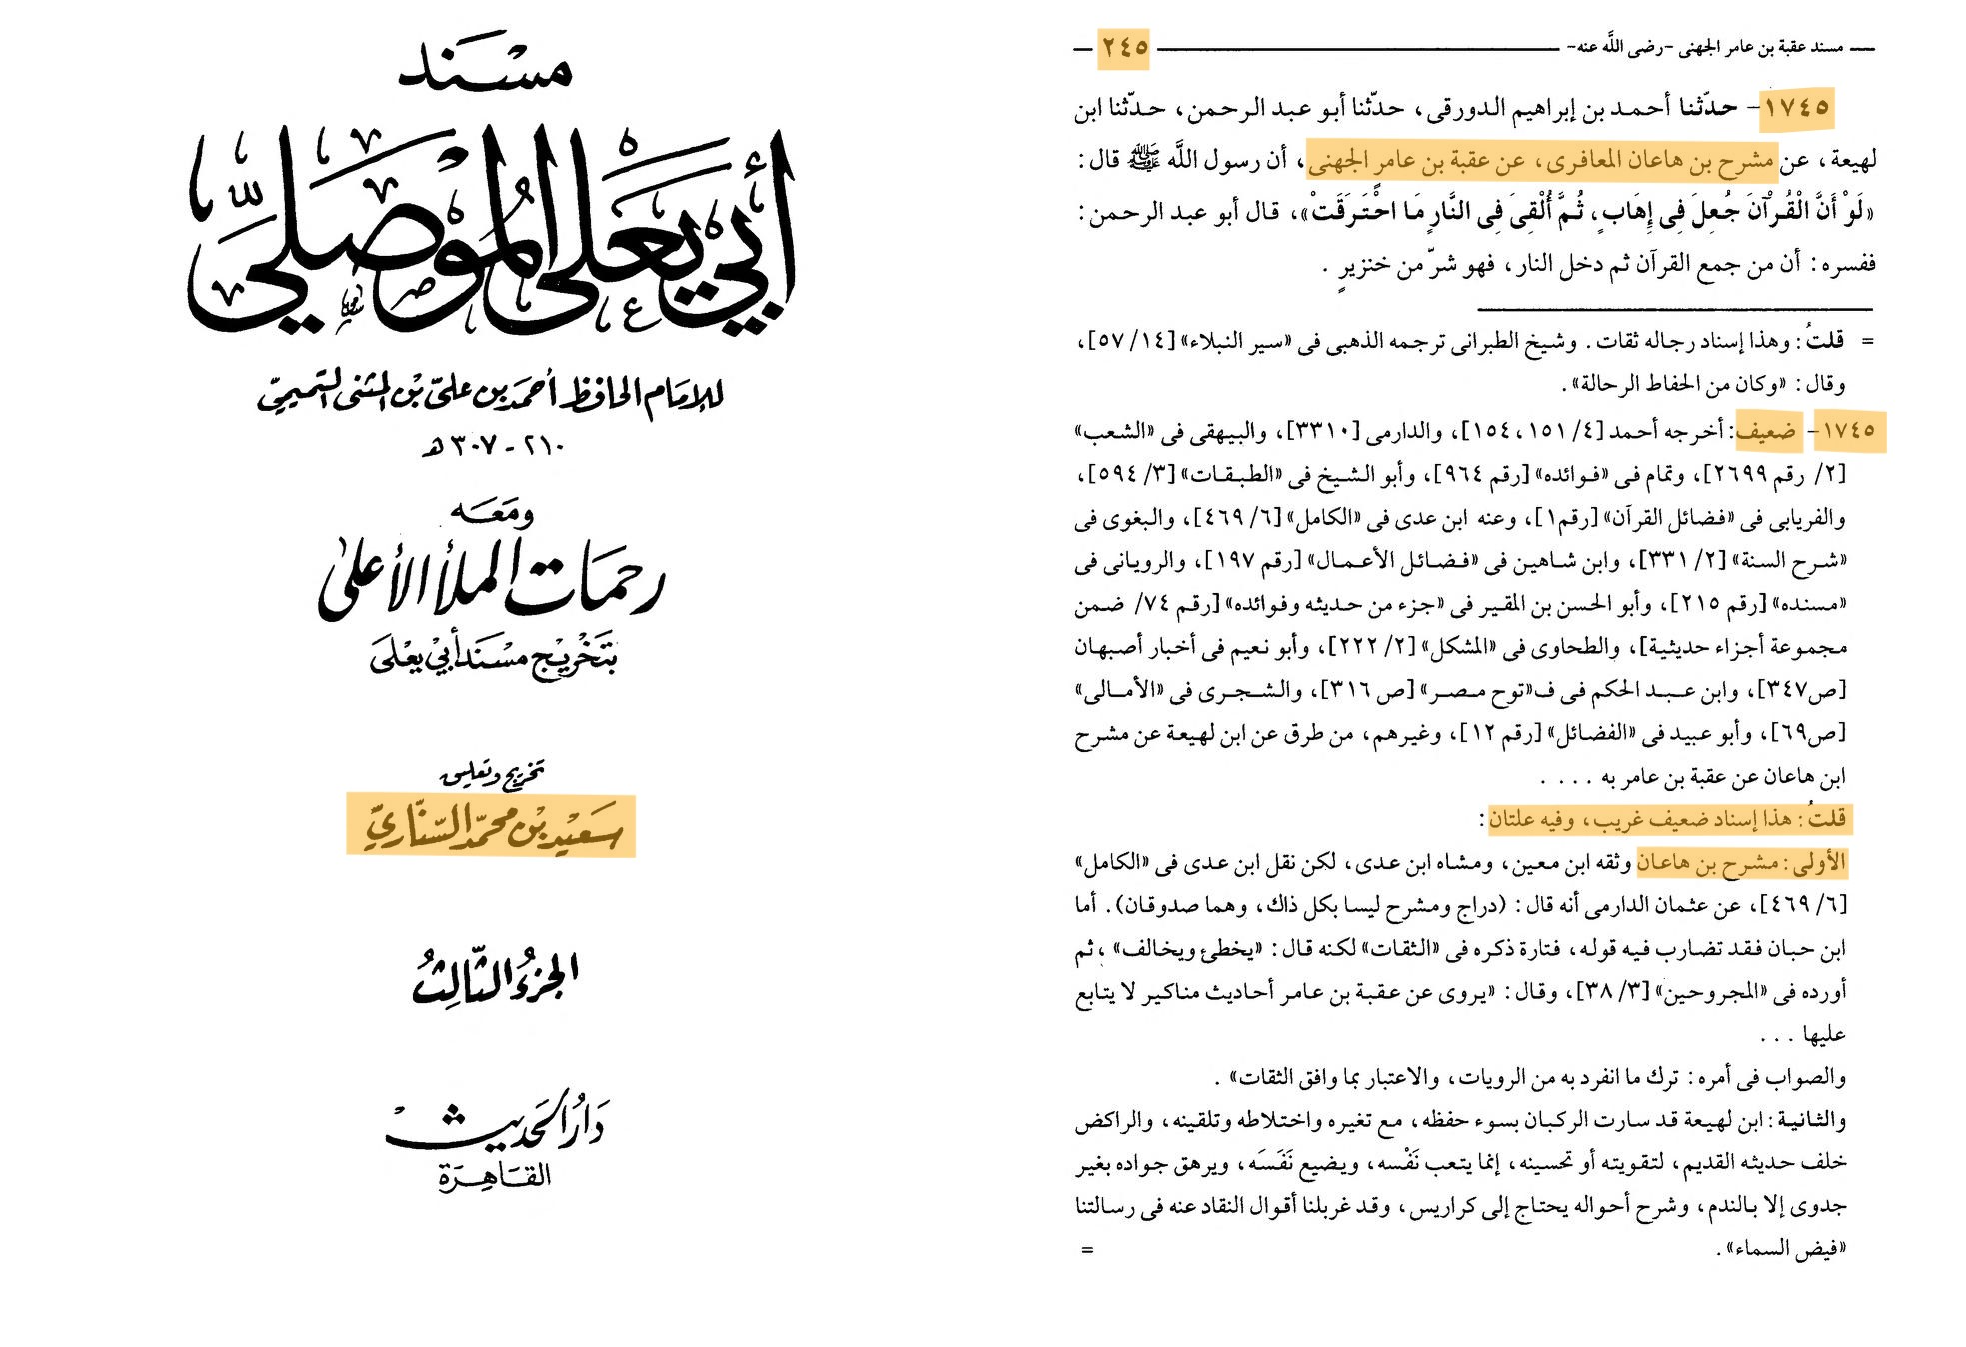 مسند
أبي يعلى الموصلي
للإمام الحافظ أحمد بن علي بن المثنى التميمي
٢١٠ - ٣٠٧ هـ
ومعه
رحمات الملأ الأعلى
بتخريج مسند أبي يعلى
تخريج وتعليق
سعيد بن محمد السناري
الجزء الثالث
دار الحديث
القاهرة
مسند عقبة بن عامر الجهنى -رضى اللَّه عنه- ٢٤٥
١٧٤٥- حدّثنا أحمد بن إبراهيم الدورقى، حدّثنا أبو عبد الرحمن، حدّثنا ابن
لهيعة، عن مشرح بن هاعان المعافرى، عن عقبة بن عامرٍ الجهنى، أن رسول اللَّه ﷺ قال:
«لَوْ أَنَّ الْقُرْآنَ جُعِلَ فِى إِهَابٍ، ثُمَّ أُلْقِىَ فِى النَّارِ مَا احْتَرَقَتْ»، قال أبو عبد الرحمن:
ففسره: أن من جمع القرآن ثم دخل النار، فهو شرّ من خنزيرٍ.
= قلتُ: وهذا إسناد رجاله ثقات. وشيخ الطبرانى ترجمه الذهبى فى «سير النبلاء» [١٤/ ٥٧]،
وقال: «وكان من الحفاظ الرحالة».
١٧٤٥- ضعيف: أخرجه أحمد [٤/ ١٥١، ١٥٤]، والدارمى [٣٣١٠]، والبيهقى فى «الشعب»
[٢/ رقم ٢٦٩٩]، وتمام فى «فوائده» [رقم ٩٦٤]، وأبو الشيخ فى «الطبقات» [٣/ ٥٩٤]،
والفريابى فى «فضائل القرآن» [رقم١]، وعنه ابن عدى فى «الكامل» [٦/ ٤٦٩]، والبغوى فى
«شرح السنة» [٢/ ٣٣١]، وابن شاهين فى «فضائل الأعمال» [رقم ١٩٧]، والرويانى فى
«مسنده» [رقم ٢١٥]، وأبو الحسن بن المقير فى «جزء من حديثه وفوائده» [رقم ٧٤/ ضمن
مجموعة أجزاء حديثية]، والطحاوى فى «المشكل» [٢/ ٢٢٢]، وأبو نعيم فى أخبار أصبهان
[ص٣٤٧]، وابن عبد الحكم فى ف«توح مصر» [ص ٣١٦]، والشجرى فى «الأمالى»
[ص٦٩]، وأبو عبيد فى «الفضائل» [رقم ١٢]، وغيرهم، من طرق عن ابن لهيعة عن مشرح
ابن هاعان عن عقبة بن عامر به ....
قلتُ: هذا إسناد ضعيف غريب، وفيه علتان:
الأولى: مشرح بن هاعان وثقه ابن معين، ومشاه ابن عدى، لكن نقل ابن عدى فى «الكامل»
[٦/ ٤٦٩]، عن عثمان الدارمى أنه قال: (دراج ومشرح ليسا بكل ذاك، وهما صدوقان). أما
ابن حبان فقد تضارب فيه قوله، فتارة ذكره فى «الثقات» لكنه قال: «يخطئ ويخالف»، ثم
أورده فى «المجروحين» [٣/ ٣٨]، وقال: «يروى عن عقبة بن عامر أحاديث مناكير لا يتابع
عليها ...
والصواب فى أمره: ترك ما انفرد به من الرويات، والاعتبار بما وافق الثقات».
والثانية: ابن لهيعة قد سارت الركبان بسوء حفظه، مع تغيره واختلاطه وتلقينه، والراكض
خلف حديثه القديم، لتقويته أو تحسينه، إنما يتعب نَفْسه، ويضيع نَفَسَه، ويرهق جواده بغير
جدوى إلا بالندم، وشرح أحواله يحتاج إلى كراريس، وقد غربلنا أقوال النقاد عنه فى رسالتنا
«فيض السماء». =